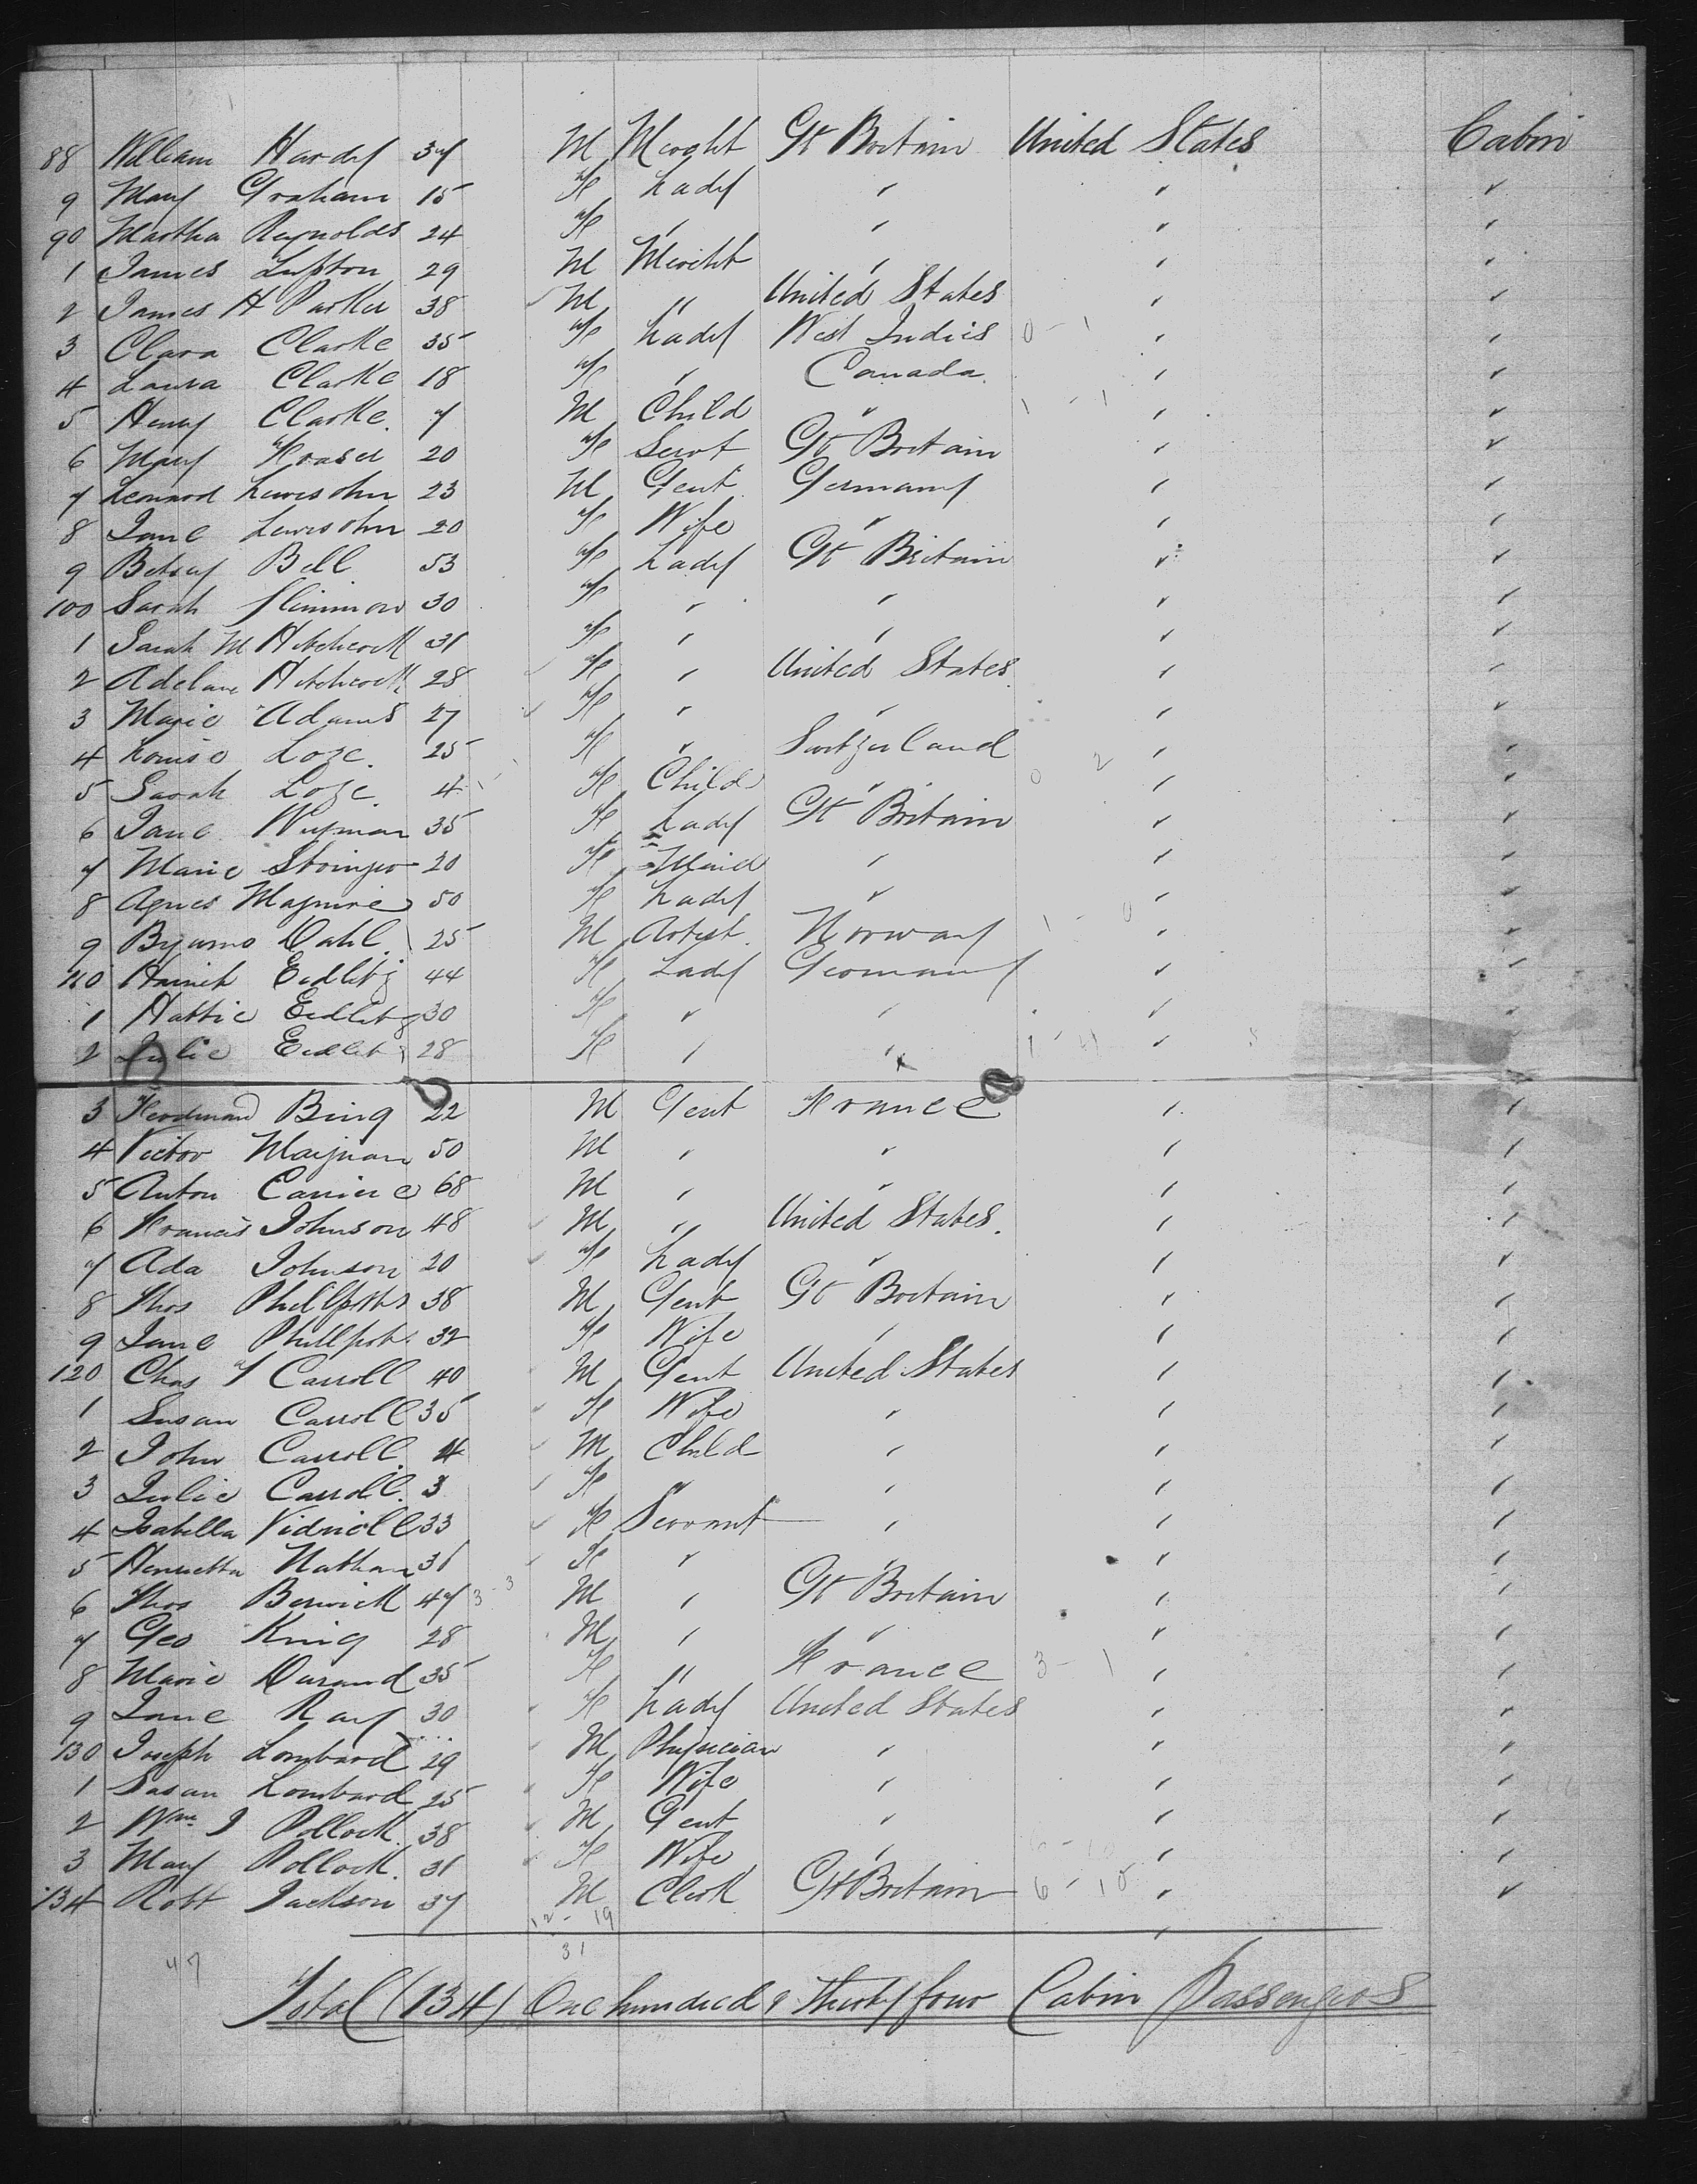 88 William Hardy 37 M Mercht Gt Britain United States Cabin
9 Mary Graham 15 F Lady " " "
90 Martha Reynolds 24 F " " " "
1 James Lupton 29 M Mercht " " "
2 James H Parker 38 M " United States " "
3 Clara Clarke 35 F Lady West Indies 0 - 1 " "
4 Laura Clarke 18 F " Canada " "
5 Henry Clarke 7 M Child " 1 - 1 " "
6 Mary Fraser 20 F Servt Gt Britain " "
7 Leonard Lewisohn 23 M Gent Germany " "
8 Jane Lewisohn 20 F Wife " " "
9 Betsey Bell 53 F Lady Gt Britain " "
100 Sarah 30 F " " " "
1 Sarah M Hitchcock 31 F " " " "
2 Adelane Hitchcock 28 F " United States " "
3 Marie Adams 27 F " " " "
4 Louise Loze 25 F " Switzerland " "
5 Sarah Loze 4 F Child " 0 2 " "
6 Jane Wyman 35 F Lady Gt Britain " "
7 Marie Stringer 20 F Maid " " "
8 Agnes Maguire 50 F Lady " " "
9 Byarno Dahl 25 M Artist Norway 1 - 0 " "
110 Eidlitz 44 F Lady Germany " "
1 Hattie Eidlitz 30 F " " " "
2 Julie Eidlitz 28 F " " 1 - 4 " "
3 Ferdinand Bing 22 M Gent France " "
4 Victor Maijnan 50 M " " " "
5 Anton Carriere 68 M " " " "
6 Francis Johnson 48 M " United States " "
7 Ada Johnson 20 F Lady " " "
8 Thos Phillpotts 38 M Gent Gt Britain " "
9 Jane Phillpot 32 F Wife " " "
120 Chas T Carroll 40 M Gent United States " "
1 Susan Carroll 35 F Wife " " "
2 John Carroll 4 M Child " " "
3 Julie Carroll 3 F " " " "
4 Isabella 33 F Servant " " "
5 Henrietta Nathan 31 F " " " "
6 Thos Berwick 47 3 - 3 M " Gt Britain " "
7 Geo King 28 M " " " "
8 Marie Durand 35 F " France 3 - 1 " "
9 Jane Ray 30 F Lady United States " "
130 Joseph Lombard 29 M Physician " " "
1 Susan Lombard 25 F Wife " " "
2 Wm J Pollock 38 M Gent " " "
3 Mary Pollock 31 F Wife " " "
134 Robt Jackson 37 M Clerk Gt Britain 6 - 10 " "
12 - 19
31
47
Total (134) One hundred & thirty four Cabin Passengers